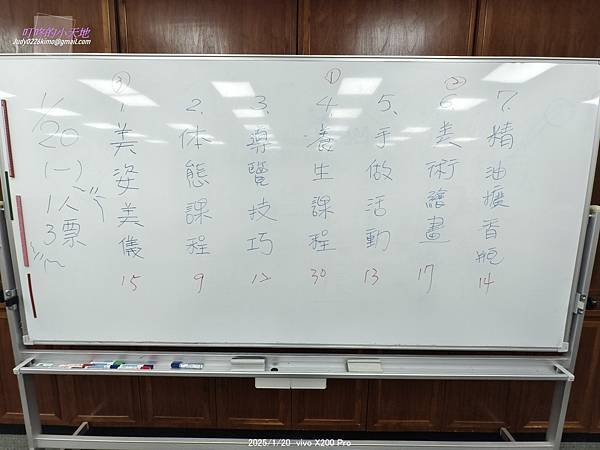 叮咚的小天地
Judy0226kimo@gmail.com
1/20
(一)
1人
3票
③
1.
美姿美儀
15
2.
体態課程
9
3.
導覽技巧
12
①
4.
養生課程
30
5.
手做活動
13
②
6.
美術繪畫
17
7.
精油擴香瓶
14
2025/1/20 vivo X200 Pro